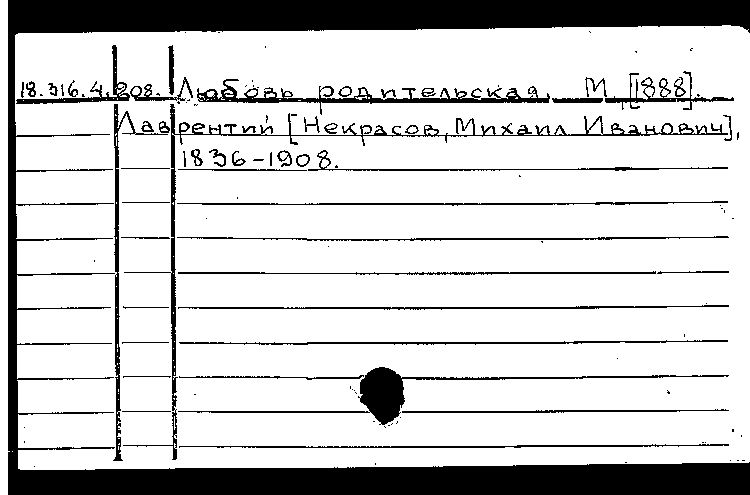 18.316.4.208. Любовь родительская. М., [1888].
Лаврентий [Некрасов, Михаил Иванович],
1836-1908.